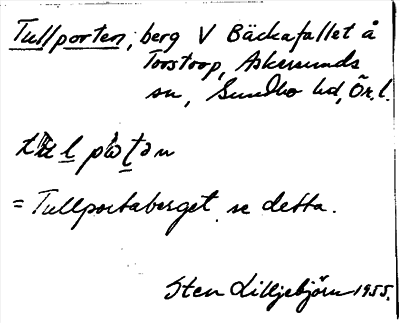 Tullporten, berg V Bäckafallet å
Torstorp, Askersunds
sn, Sundbo hd, Ör. l.
= Tullportaberget, se detta.
Sten Lilljebjörn 1955.